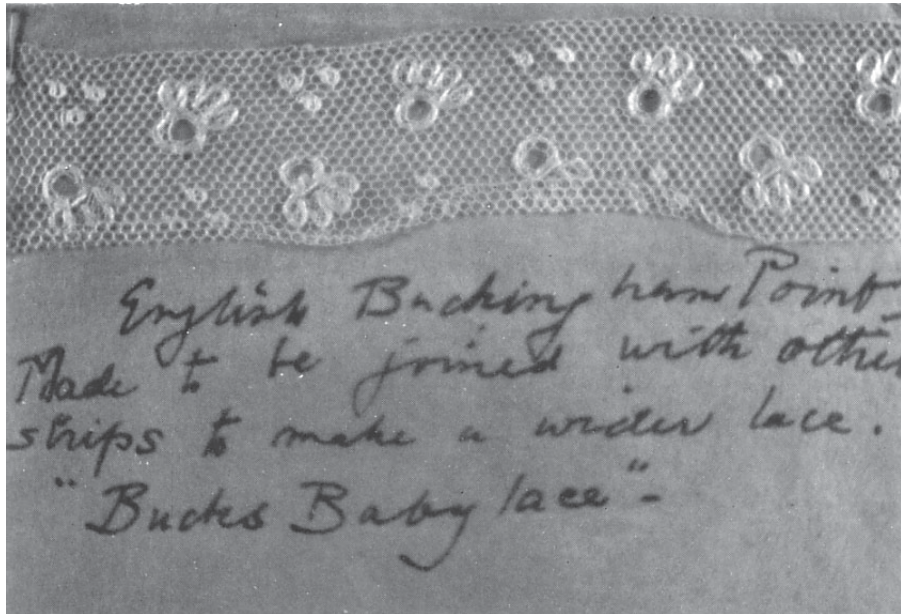 English Buckingham Point
Made to be joined with other
strips to make a wider lace.
"Bucks Baby lace" -